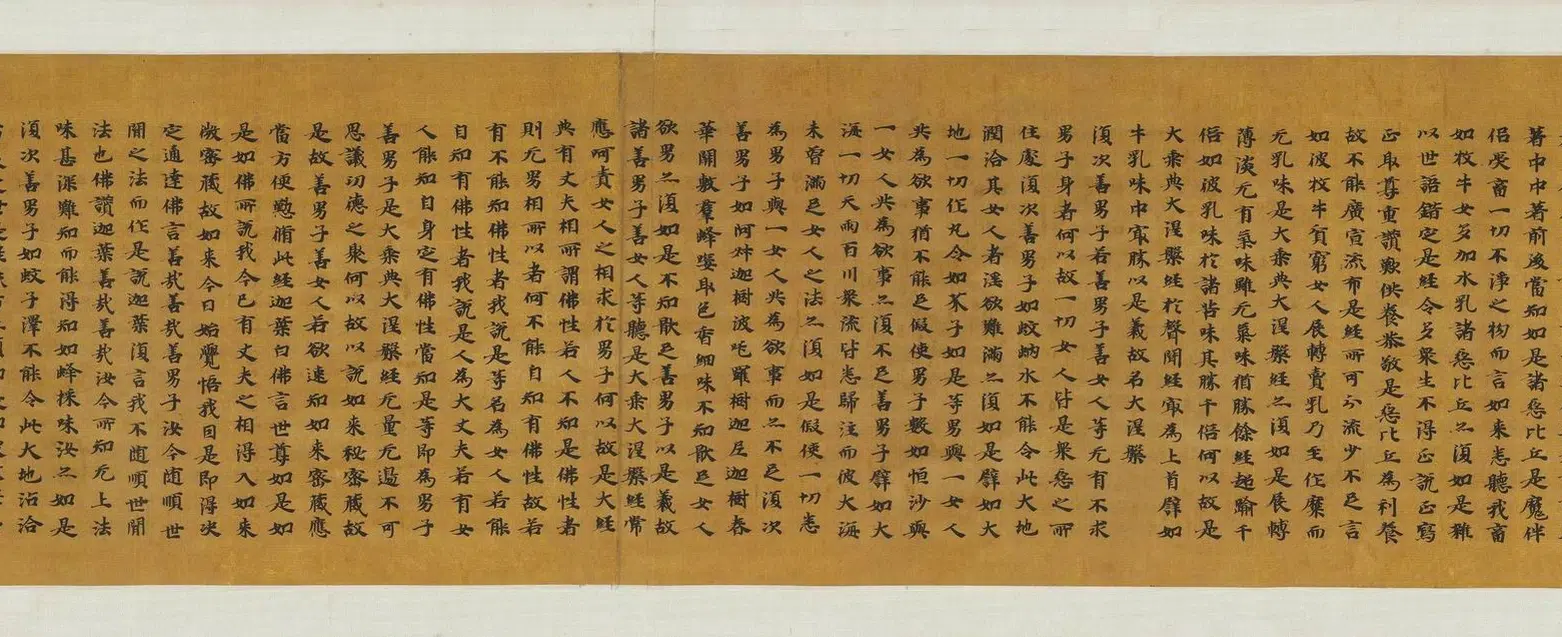 著中中著前後當知如是諸惡比丘是魔伴
侶受畜一切不淨之物而言如來悉聽我畜
如牧牛女多加水乳諸惡比丘亦復如是雜
以世語錯定是經令多眾生不得正說正寫
正取尊重讚歎供養恭敬是惡比丘為利養
故不能廣宣流布是經所可分流少不足言
如彼牧牛貧窮女人展轉賣乳乃至作糜而
无乳味是大乘典大涅槃經亦復如是展轉
薄淡无有氣味雖无氣味猶勝餘經超踰千
倍如彼乳味於諸苦味其勝千倍何以故是
大乘典大涅槃經於聲聞經冣為上首譬如
牛乳味中冣勝以是義故名大涅槃
復次善男子若善男子善女人等无有不求
男子身者何以故一切女人皆是眾惡之所
住處復次善男子如蚊蚋水不能令此大地
潤洽其女人者淫欲難滿亦復如是譬如大
地一切作丸令如芥子如是等男與一女人
共為欲事猶不能足假使男子數如恒沙與
一女人共為欲事亦復不足善男子譬如大
海一切天雨百川眾流皆悉歸注而彼大海
未曾滿足女人之法亦復如是假使一切悉
為男子與一女人共為欲事而亦不足復次
善男子如阿舛迦樹波吒羅樹迦尼迦樹春
華開敷羣蜂唼取色香細味不知猒足女人
欲男亦復如是不知猒足善男子以是義故
諸善男子善女人等聽是大乘大涅槃經常
應呵責女人之相求於男子何以故是大經
典有丈夫相所謂佛性若人不知是佛性者
則无男相所以者何不能自知有佛性故若
有不能知佛性者我說是等名為女人若能
自知有佛性者我說是人為大丈夫若有女
人能知自身定有佛性當知是等即為男子
善男子是大乘典大涅槃經无量无邊不可
思議功德之聚何以故以說如來秘密藏故
是故善男子善女人若欲速知如來密藏應
當方便懃脩此經迦葉白佛言世尊如是如
是如佛所說我今已有丈夫之相得入如來
微密藏故如來今日始覺悟我因是即得決
定通達佛言善哉善哉善男子汝今隨順世
間之法而作是說迦葉復言我不隨順世間
法也佛讚迦葉善哉善哉汝今所知无上法
味甚深難知而能得知如蜂採味汝亦如是
復次善男子如蚊子澤不能令此大地沾洽